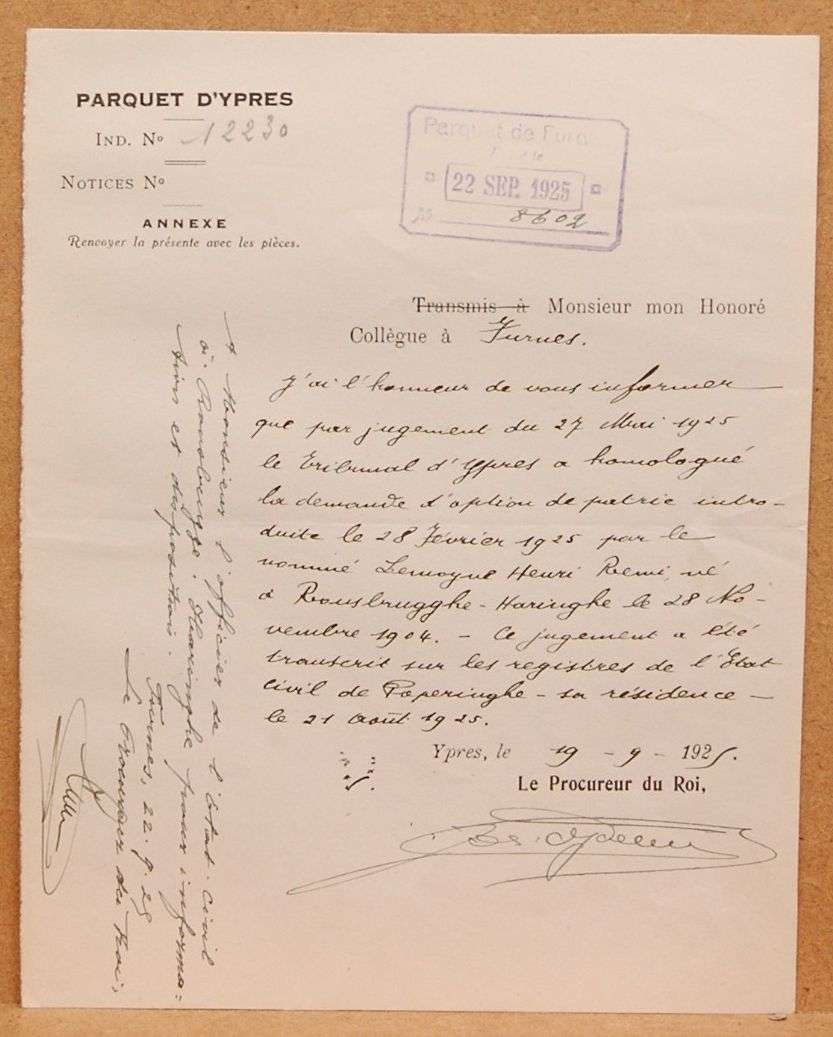 PARQUET D'YPRES
IND. Nº 12230
NOTICES Nº
ANNEXE
Renvoyer la présente avec les pièces.
Parquet de Furnes
22 SEP. 1925
Nº 8602
Transmis à Monsieur mon Honoré
Collègue à Furnes.
J'ai l'honneur de vous informer
que par jugement du 27 Mai 1925
le Tribunal d'Ypres a homologué
la demande d'option de patrie intro-
duite le 28 Février 1925 par le
nommé Lemoyne Henri Remi, né
à Rousbrugghe-Haringhe le 28 No-
vembre 1904. - Ce jugement a été
transcrit sur les registres de l'Etat
civil de Poperinghe - sa résidence -
le 21 Août 1925.
Ypres, le 19 - 9 - 1925.
Le Procureur du Roi,
A Monsieur l'officier de l'état-civil
à Rousbrugge-Haringhe pour informa=
tion et disposition.
Furnes, 22.9.25
Le Procureur du Roi,